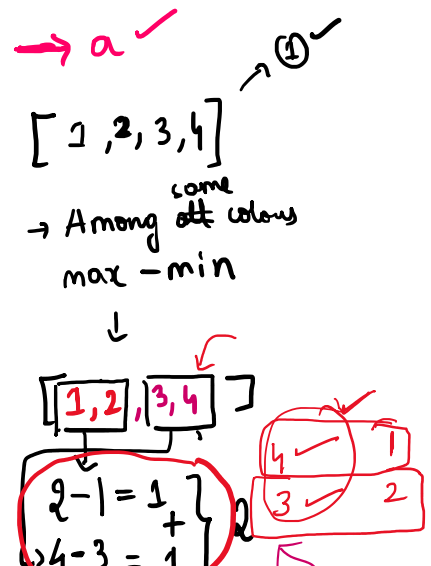 → a ✓
→ ① ✓
[ 1 , 2 , 3 , 4 ]
same
→ Among all colous
max - min
↓
[ 1,2 , 3,4 ]
4 ✓ 1
3 ✓ 2
2-1 = 1
+
4-3 = 1
2